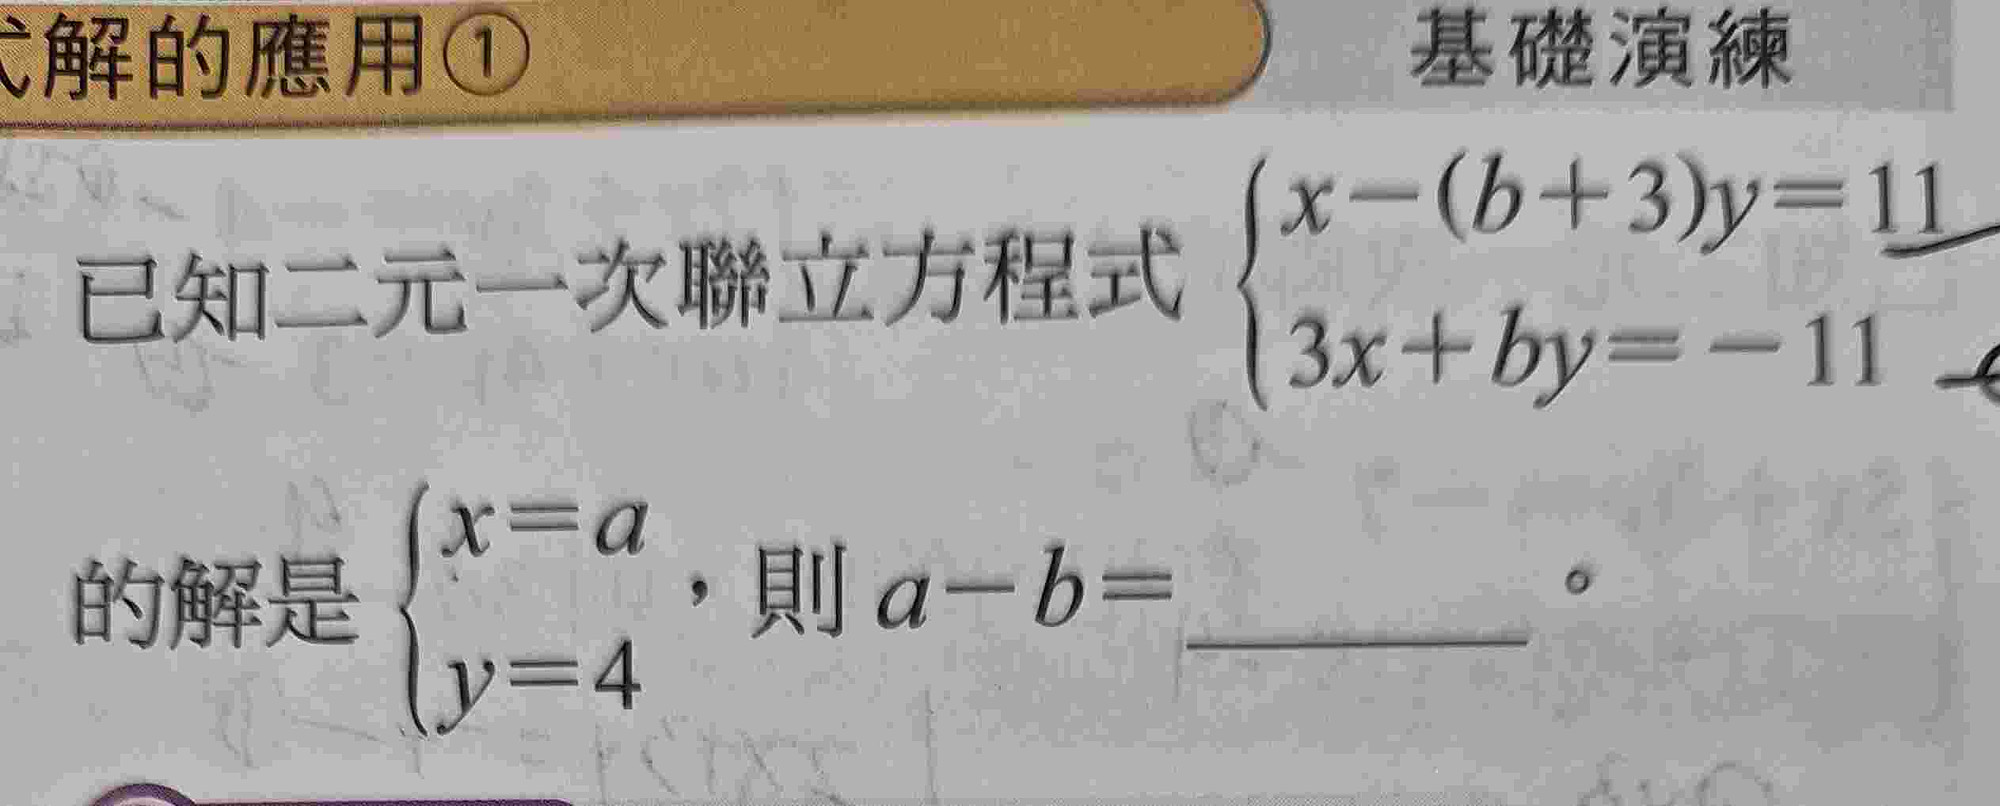 解的應用① 基礎演練
已知二元一次聯立方程式 { x－(b＋3)y＝11
3x＋by＝－11
的解是 { x＝a
y＝4 ，則 a－b＝______。